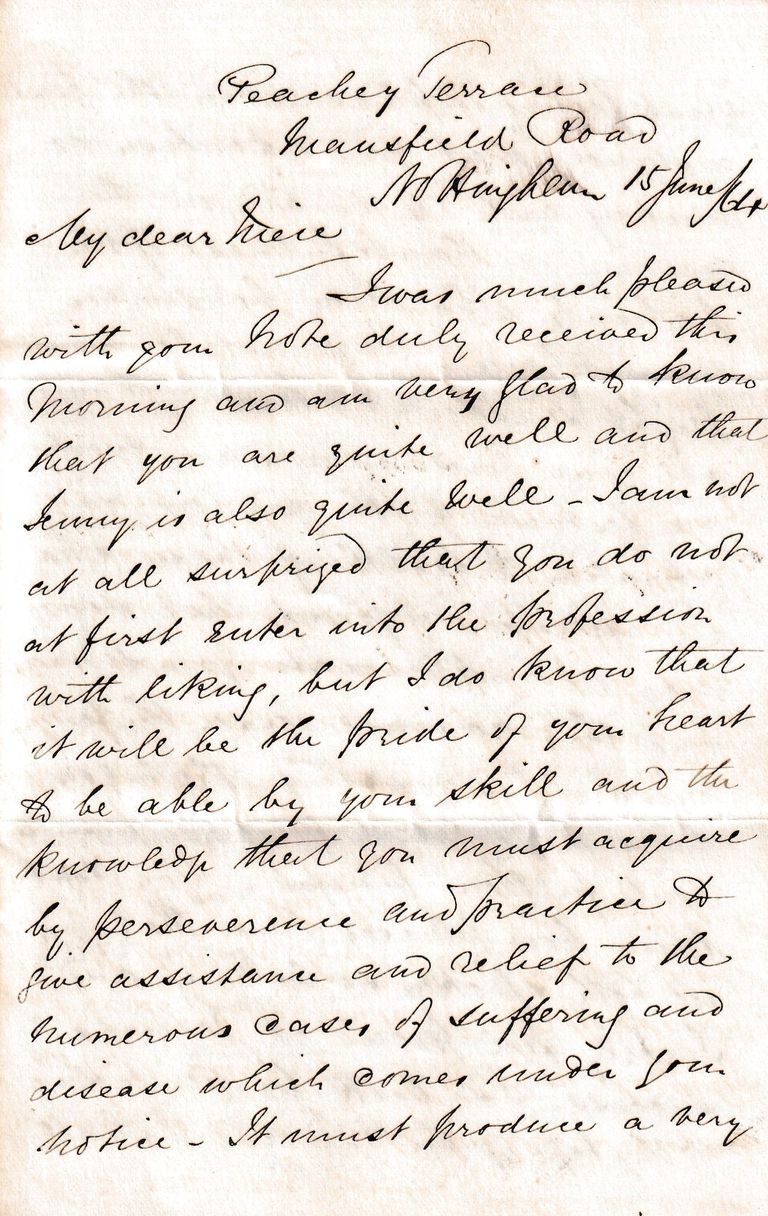 Peachey Terrace
Mansfield Road
Nottingham 15 June /64
My dear Niece
I was much pleased
with your Note duly received this
Morning and am very glad to know
that you are quite well and that
Jenny is also quite well - I am not
at all surprized that you do not
at first enter into the profession
with liking, but I do know that
it will be the pride of your heart
to be able by your skill and the
knowledge that you must acquire
by perseverence and practice to
give assistance and relief to the
numerous cases of suffering and
disease which comes under your
notice - It must produce a very